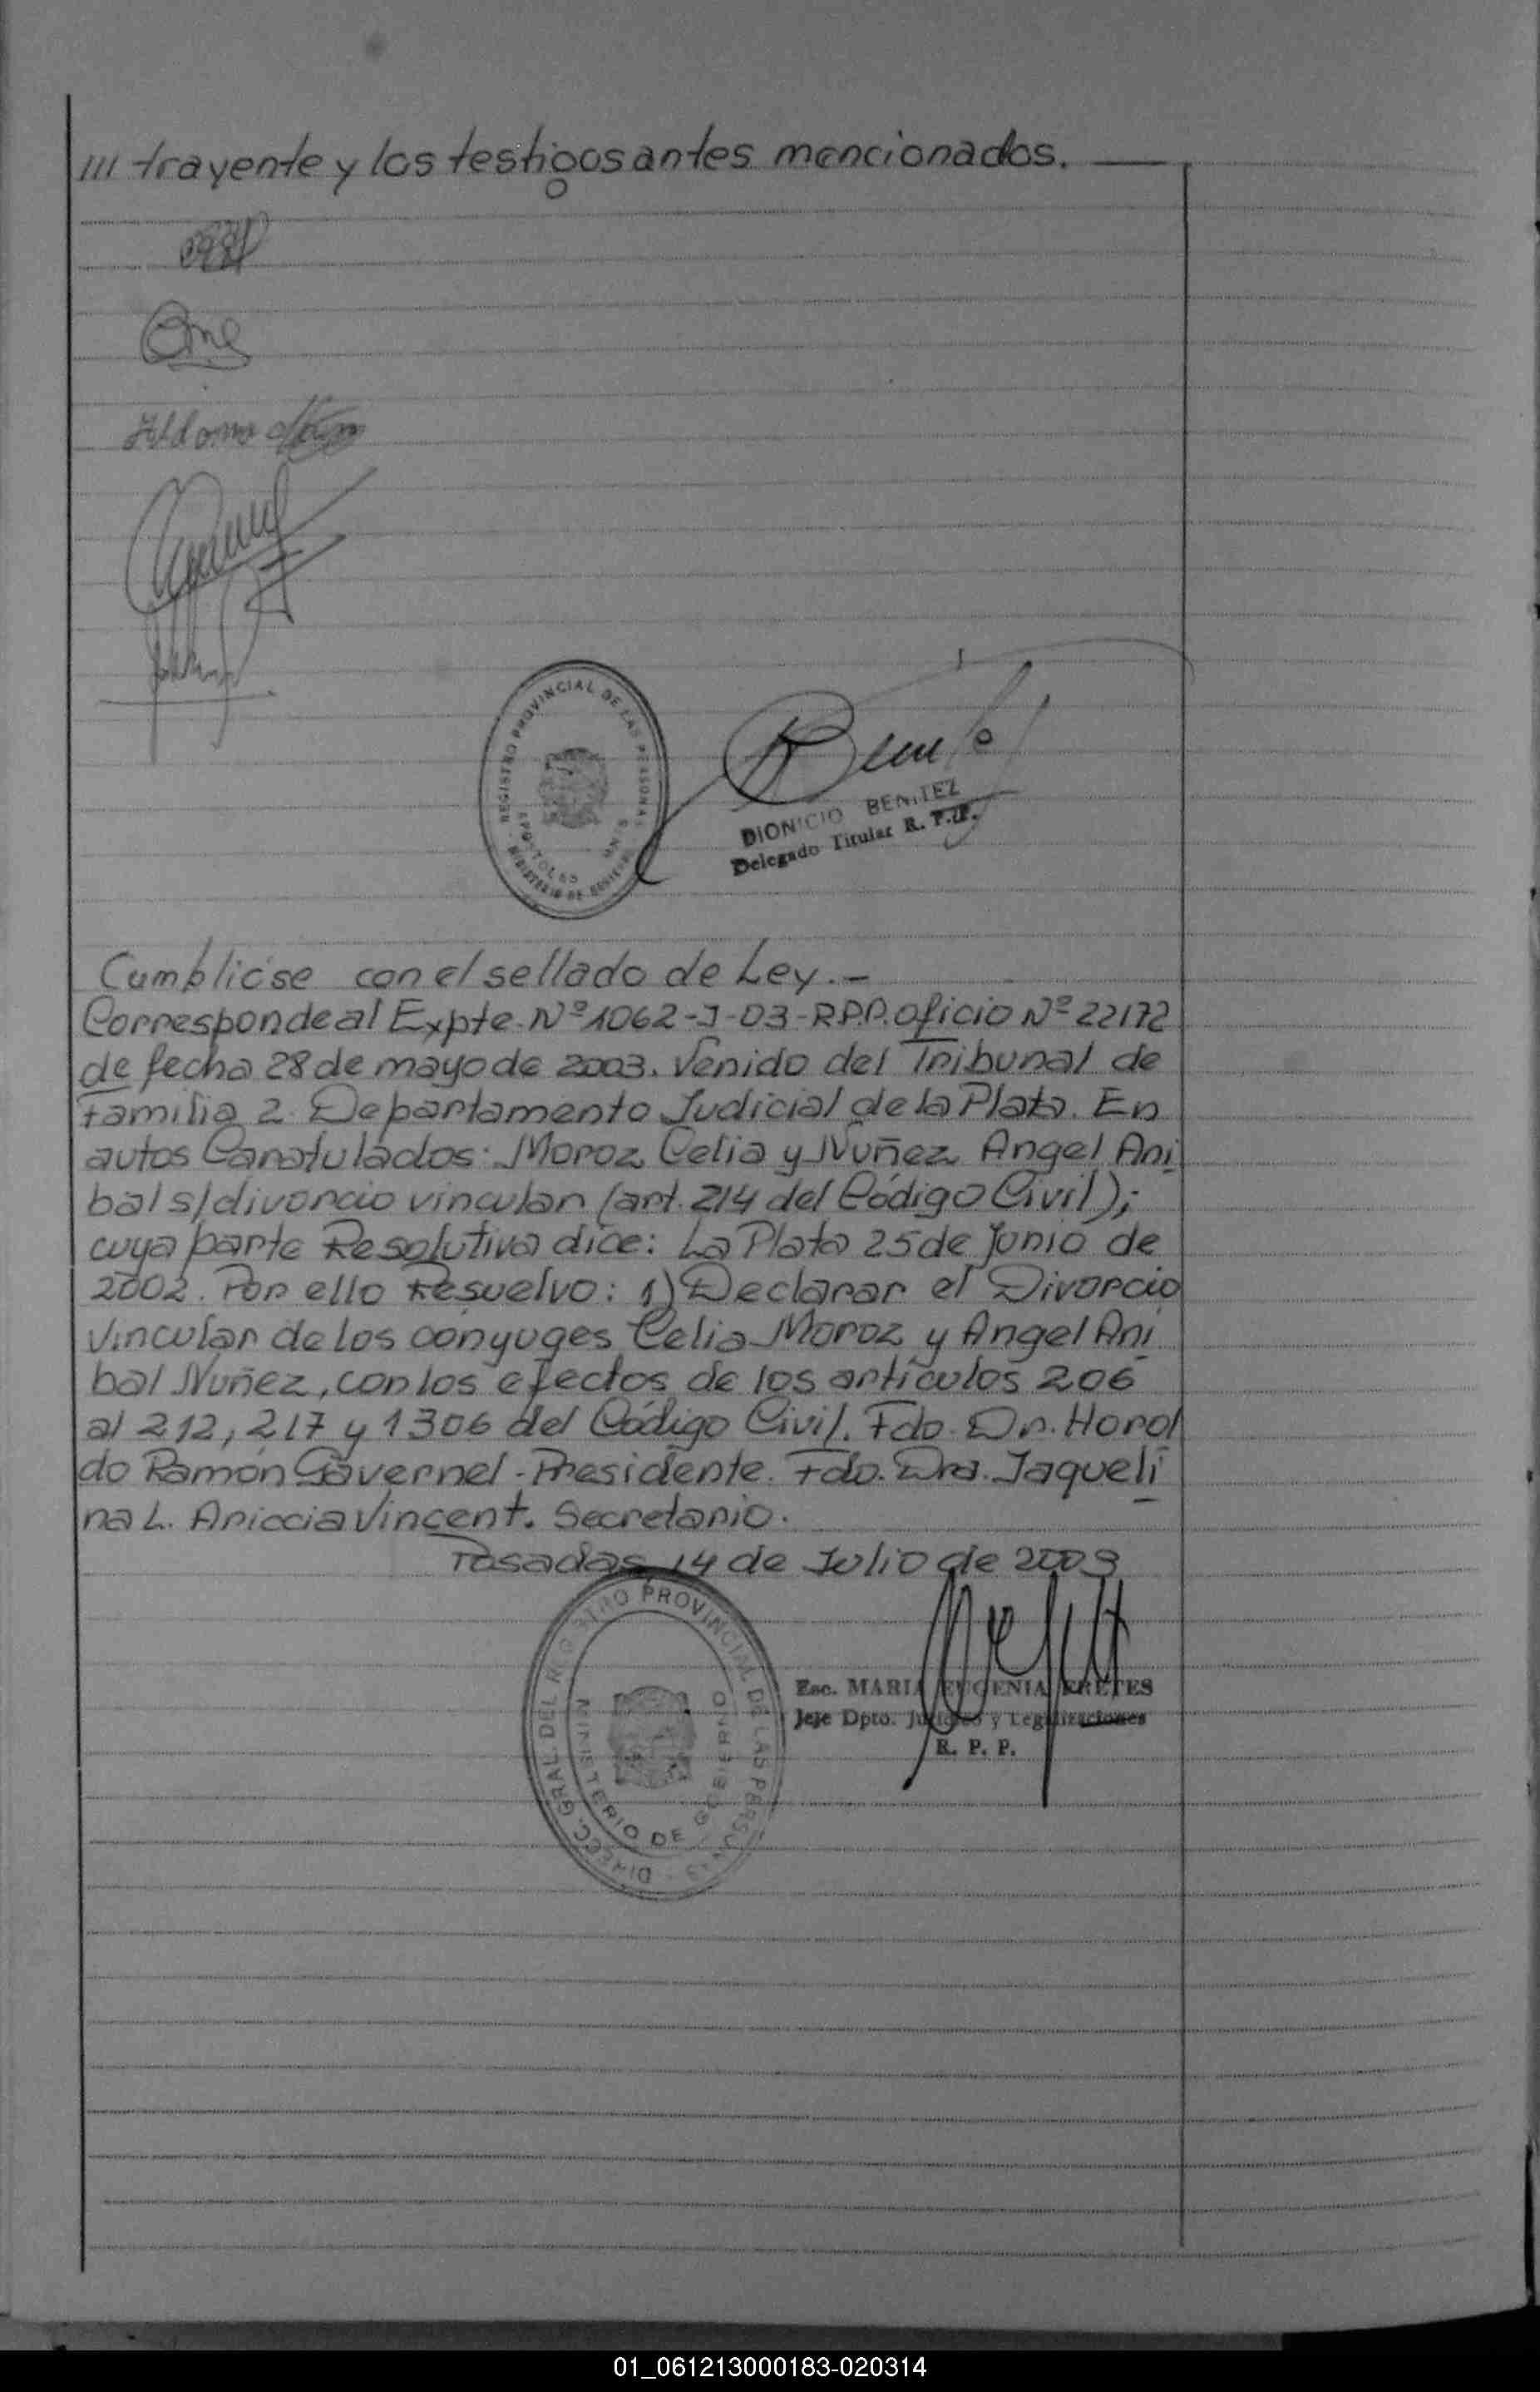 /// trayente y los testigos antes mencionados. ——
REGISTRO PROVINCIAL DE LAS PERSONAS
APOSTOLES
MINISTERIO DE GOBIERNO
DIONICIO BENITEZ
Delegado Titular R. P. P.
Cumplióse con el sellado de Ley.-
Corresponde al Expte. Nº 1062-J-03-R.P.P. oficio Nº 22172
de fecha 28 de mayo de 2003. Venido del Tribunal de
Familia 2 Departamento Judicial de la Plata. En
autos Caratulados: Moroz Celia y Nuñez Angel Ani
bal s/divorcio vincular (art. 214 del Código Civil);
cuya parte Resolutiva dice: La Plata 25 de Junio de
2002. Por ello Resuelvo: 1) Declarar el Divorcio
Vincular de los conyuges Celia Moroz y Angel Ani
bal Nuñez, con los efectos de los artículos 206
al 212, 217 y 1306 del Código Civil. Fdo. Dr. Horol
do Ramón Gavernel - Presidente. Fdo. Dra. Jaqueli
na L. Ariccia Vincent. Secretario.
Posadas, 14 de Julio de 2003
DIRECC. GRAL. DEL REGISTRO PROVINCIAL DE LAS PERSONAS
MINISTERIO DE GOBIERNO
Esc. MARIA EUGENIA FRETES
Jefe Dpto. Jurídico y Legalizaciones
R. P. P.
01_061213000183-020314